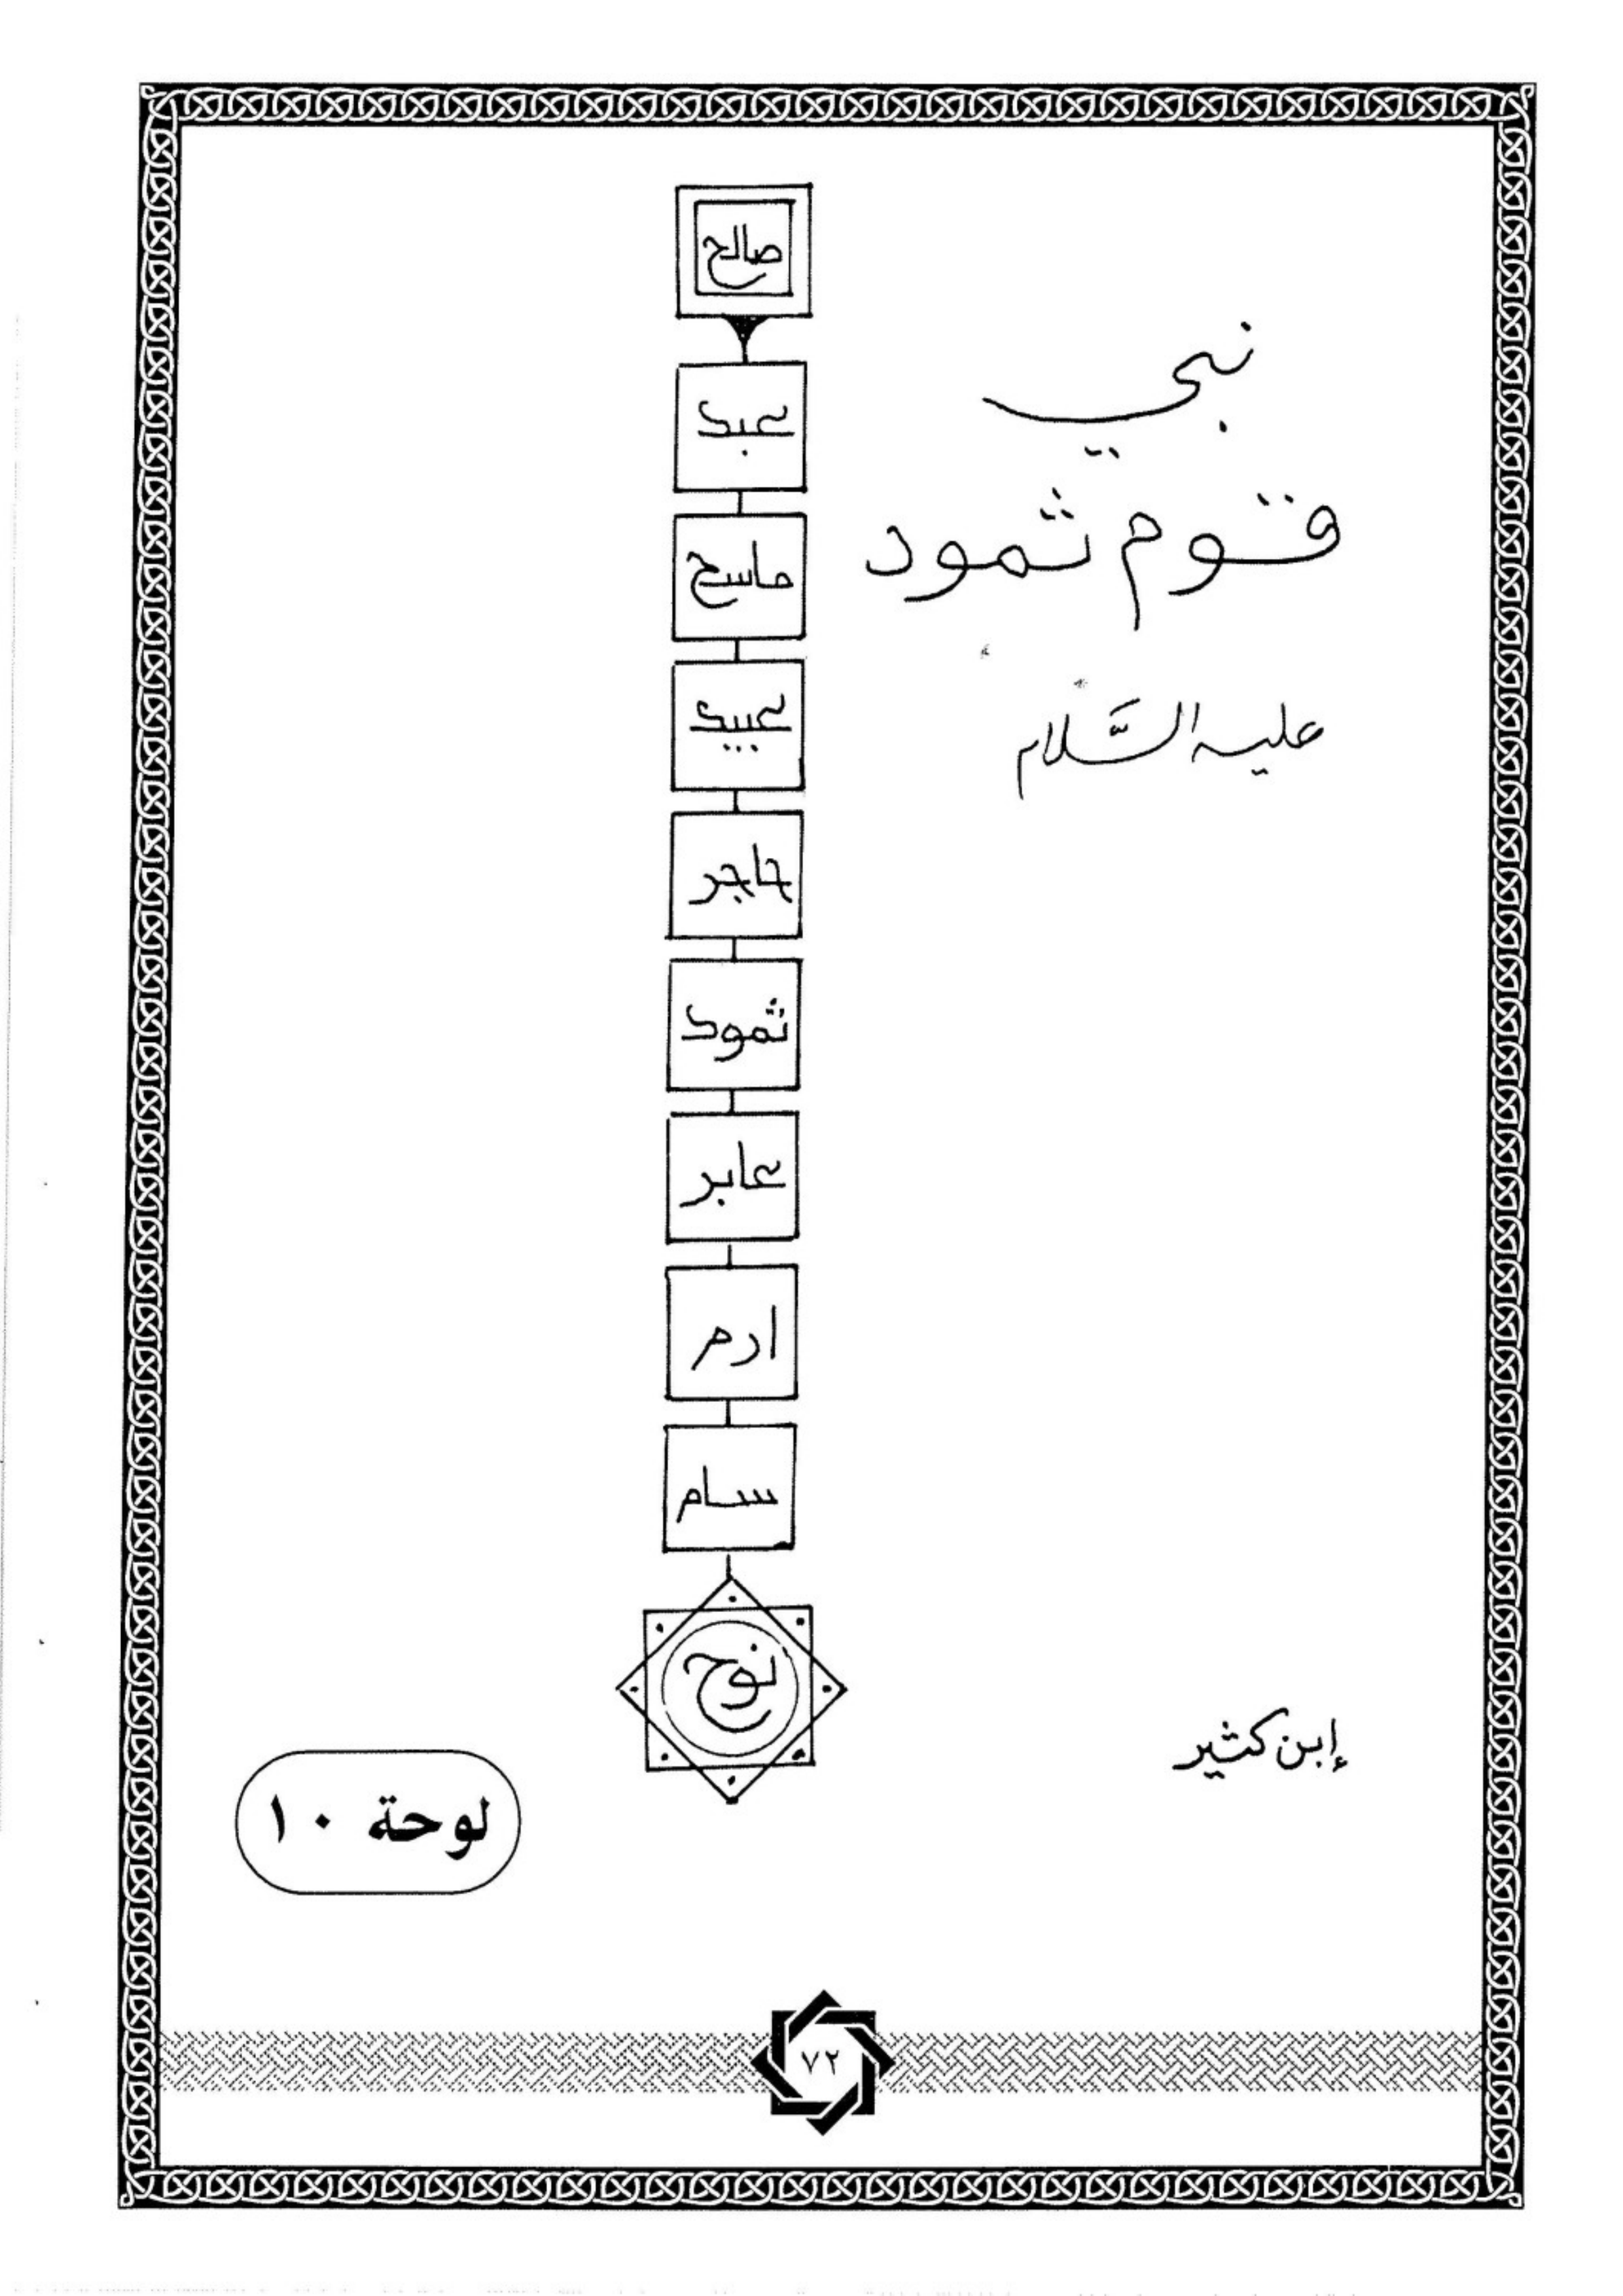 نبي
قوم ثمود
عليه السَّلام
صالح
عبد
ماسح
عبيد
حاجر
ثمود
عابر
ارم
سام
نوح
إبن كثير
لوحة ١٠
٧٢